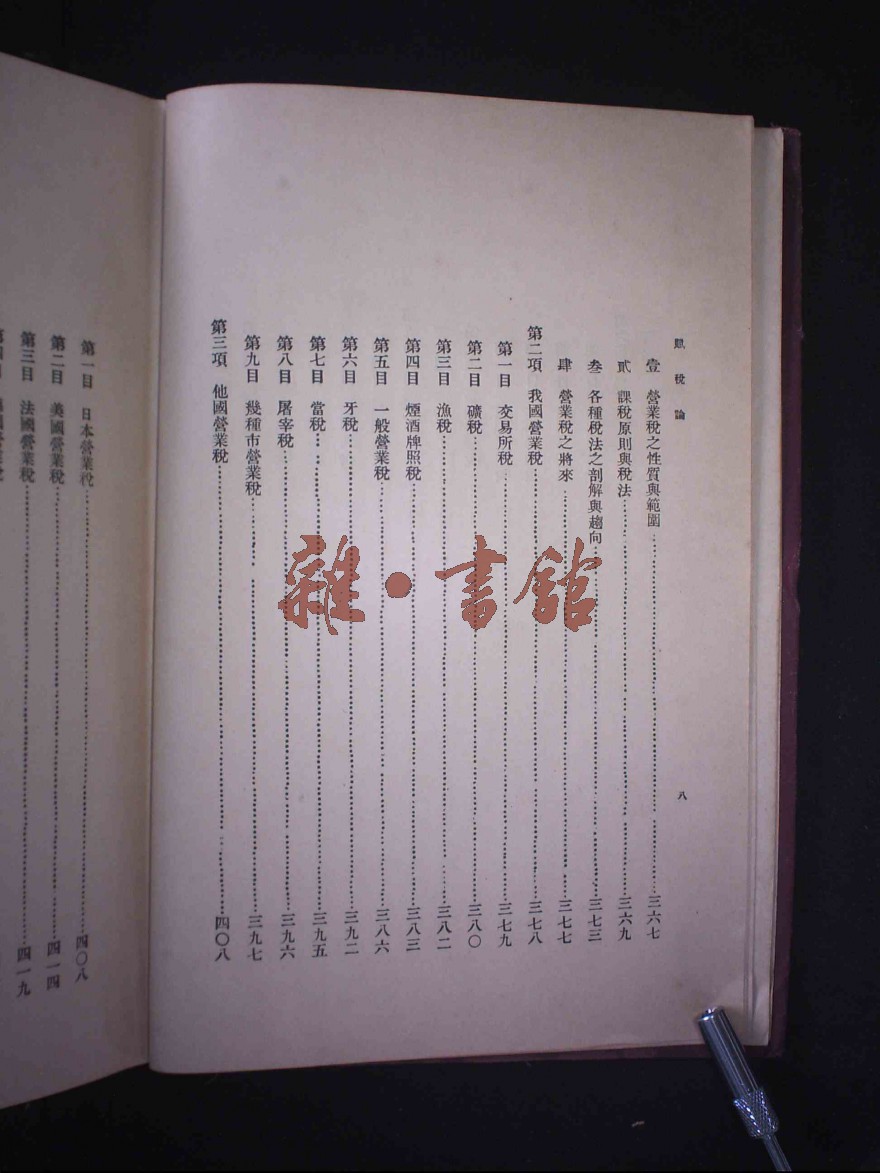 賦稅論
八
壹 營業稅之性質與範圍……三六七
貳 課稅原則與稅法……三六九
叁 各種稅法之剖解與趨向……三七三
肆 營業稅之將來……三七七
第二項 我國營業稅……三七八
第一目 交易所稅……三七九
第二目 礦稅……三八〇
第三目 漁稅……三八二
第四目 煙酒牌照稅……三八三
第五目 一般營業稅……三八六
第六目 牙稅……三九二
第七目 當稅……三九五
第八目 屠宰稅……三九六
第九目 幾種市營業稅……三九七
第三項 他國營業稅……四〇八
第一目 日本營業稅……四〇八
第二目 美國營業稅……四一四
第三目 法國營業稅……四一九
雜·書館